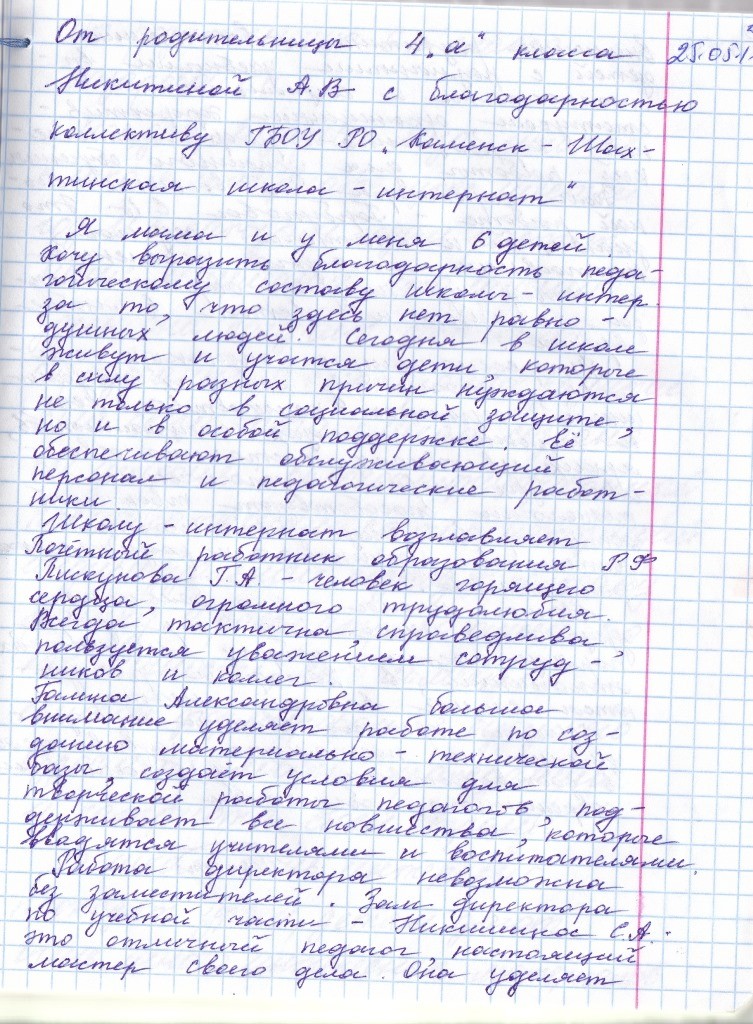 От родительницы 4 „а" класса 25.05.1
Никитиной А.В с благодарностью
коллективу ГБОУ РО „Каменск-Шах-
тинская школа-интернат"
Я мама и у меня 6 детей.
Хочу выразить благодарность педа-
гогическому составу школы-интер.
за то, что здесь нет равно-
душных людей. Сегодня в школе
живут и учатся дети, которые
в силу разных причин нуждаются
не только в социальной защите,
но и в особой поддержке. Её
обеспечивают обслуживающий
персонал и педагогические работ-
ники.
Школу-интернат возглавляет
Почётный работник образования РФ
Пискунова Г.А. - человек горящего
сердца, огромного трудолюбия.
Всегда тактична, справедлива,
пользуется уважением сотруд-
ников и коллег.
Галина Александровна большое
внимание уделяет работе по соз-
данию материально-технической
базы, создаёт условия для
творческой работы педагогов, под-
держивает все новшества, которые
вводятся учителями и воспитателями.
Работа директора невозможна
без заместителей. Зам директора
по учебной части - С.А. -
это отличный педагог, настоящий
мастер своего дела. Она уделяет